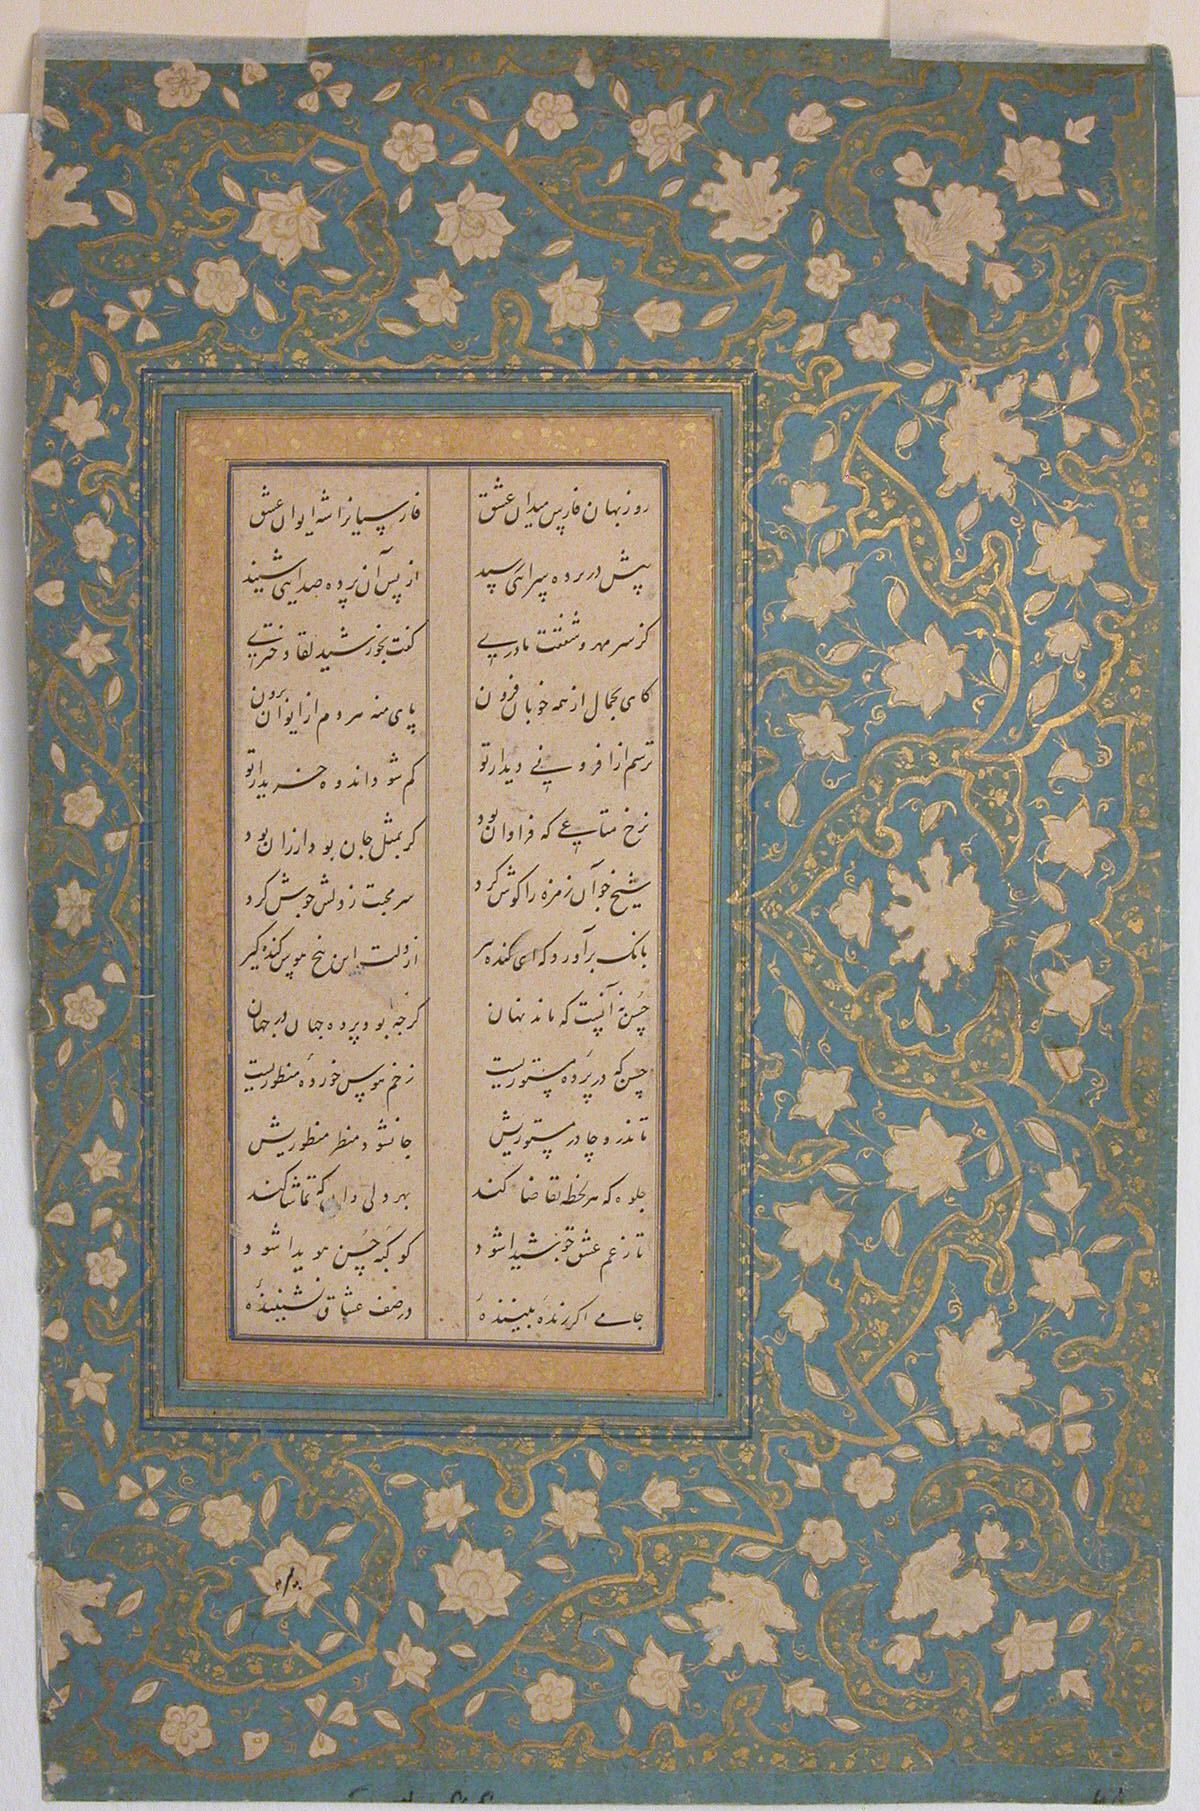 روزبهان فارس میدان عشق فارسیانرا شه ایوان عشق
پیش در پرده سرای رسید از پس آن پرده صدایی شنید
کز سر مهر و شفقت مادری گفت بخورشید لقا دختری
کای بجمال از همه خوبان فزون پای منه هردم از ایوان برون
ترسم از افزونی دیدار تو کم شود اندوه خریدار تو
نرخ متاعی که فراوان بود گر بمثل جان بود ارزان بود
شیخ چو آن زمزمه را گوش کرد سر محبت ز دلش جوش کرد
بانک برآورد که ای کنده پیر از دلت این بیخ هوس کنده گیر
حسن نه آنست که ماند نهان گرچه بود پرده جهان در جهان
حسن که در پرده مستوریست زخم هوس خورده منظوریست
تا ندرد چادر مستوریش جا نشود منظر منظوریش
جلوه که هر لحظه تقاضا کند بهر دلی دان که تماشا کند
تا ز غم عشق چو شیدا شود کوکبه حسن هویدا شود
جامی اگر زنده بیننده در صف عشاق نشیننده